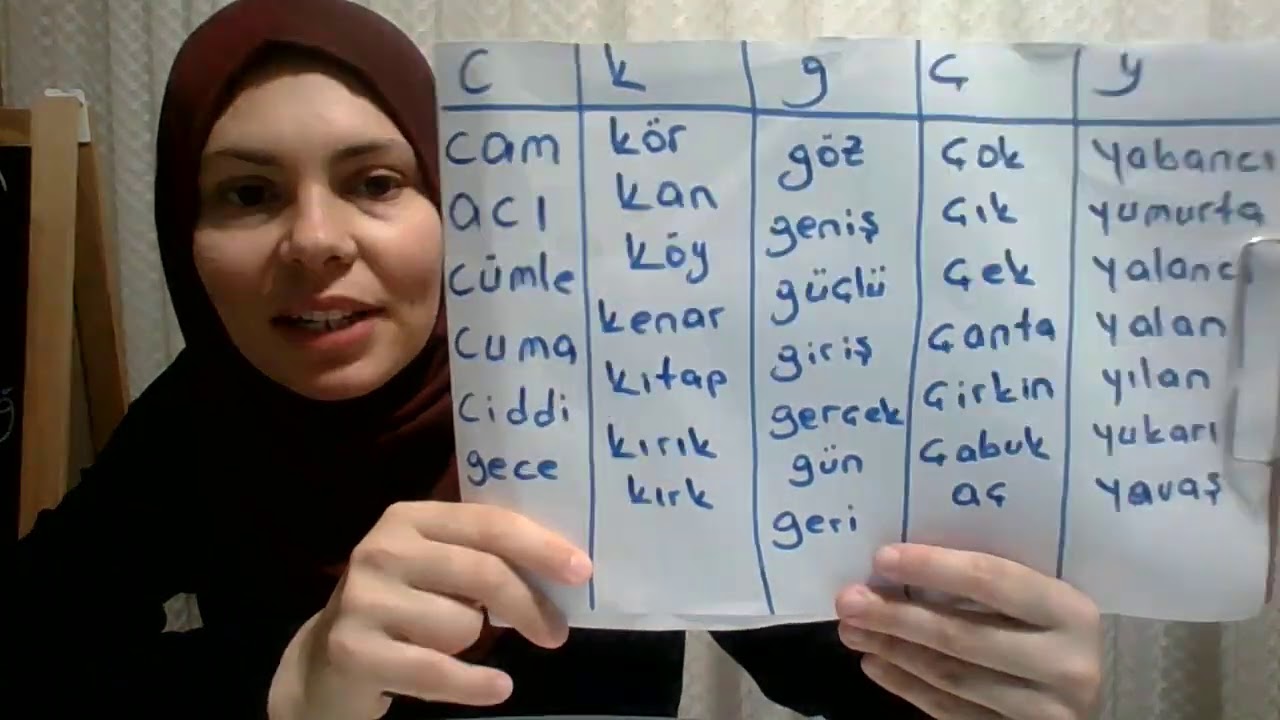 c k g ç y
cam kör göz çok yabancı
acı kan geniş çık yumurta
cümle köy güçlü çek yalancı
cuma kenar giriş çanta yalan
ciddi kıtap gerçek çirkin yılan
gece kırık gün çabuk yukarı
kırk geri aç yavaş